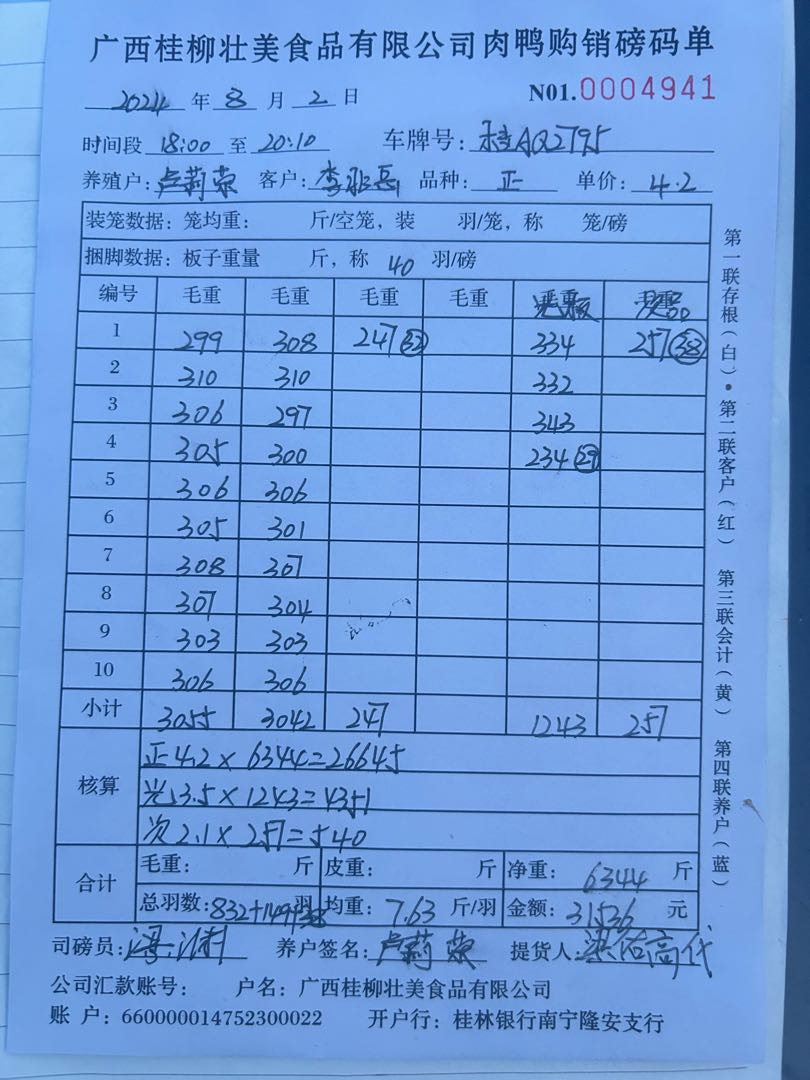 广西桂柳壮美食品有限公司肉鸭购销磅码单
2024 年 8 月 2 日 N01.0004941
时间段 18:00 至 20:10 车牌号: 桂AQ2795
养殖户: 卢莉荣 客户: 李 品种: 正 单价: 4.2
装笼数据: 笼均重: 斤/空笼, 装 羽/笼, 称 笼/磅
捆脚数据: 板子重量 斤, 称 40 羽/磅
编号 毛重 毛重 毛重 毛重
1 299 308 247 32 334 257 38
2 310 310 332
3 306 297 343
4 305 300 234 29
5 306 306
6 305 301
7 308 307
8 307 304
9 303 303
10 306 306
小计 3055 3042 247 1243 257
核算 正 4.2 × 6344 = 26645
光 3.5 × 1243 = 4351
次 2.1 × 257 = 540
合计 毛重: 斤 皮重: 斤 净重: 6344 斤
总羽数: 832+149+38 羽 均重: 7.63 斤/羽 金额: 31536 元
司磅员: 养户签名: 卢莉荣 提货人: 高代
公司汇款账号: 户名: 广西桂柳壮美食品有限公司
账 户: 660000014752300022 开户行: 桂林银行南宁隆安支行
第一联存根(白)·第二联客户(红) 第三联会计(黄) 第四联养户(蓝)